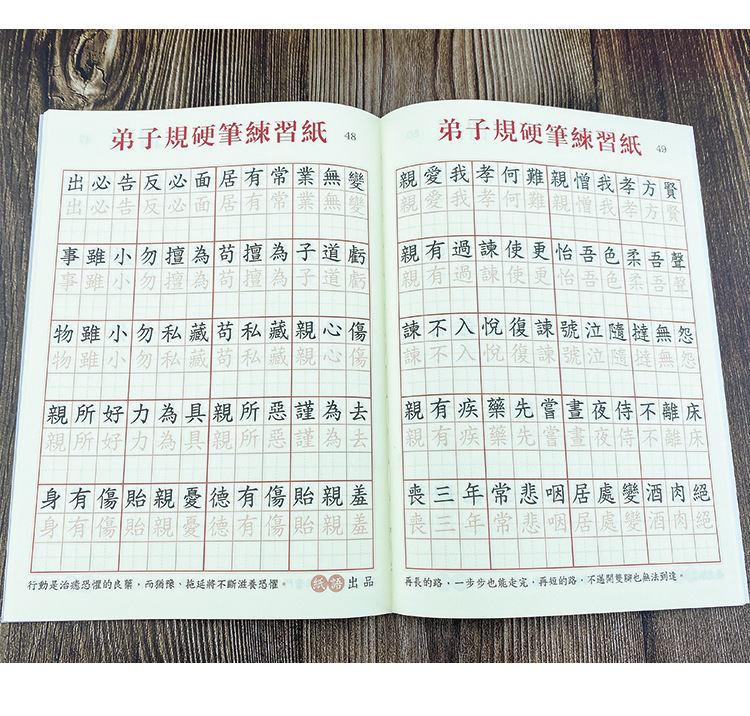 弟子規硬筆練習紙 48
出必告反必面居有常業無變
出必告反必面居有常業無變
事雖小勿擅為苟擅為子道虧
事雖小勿擅為苟擅為子道虧
物雖小勿私藏苟私藏親心傷
物雖小勿私藏苟私藏親心傷
親所好力為具親所惡謹為去
親所好力為具親所惡謹為去
身有傷貽親憂德有傷貽親羞
身有傷貽親憂德有傷貽親羞
行動是治癒恐懼的良藥，而猶豫、拖延將不斷滋養恐懼。 紙語出品
弟子規硬筆練習紙 49
親愛我孝何難親憎我孝方賢
親愛我孝何難親憎我孝方賢
親有過諫使更怡吾色柔吾聲
親有過諫使更怡吾色柔吾聲
諫不入悅復諫號泣隨撻無怨
諫不入悅復諫號泣隨撻無怨
親有疾藥先嘗晝夜侍不離床
親有疾藥先嘗晝夜侍不離床
喪三年常悲咽居處變酒肉絕
喪三年常悲咽居處變酒肉絕
再長的路，一步步也能走完，再短的路，不邁開雙腳也無法到達。